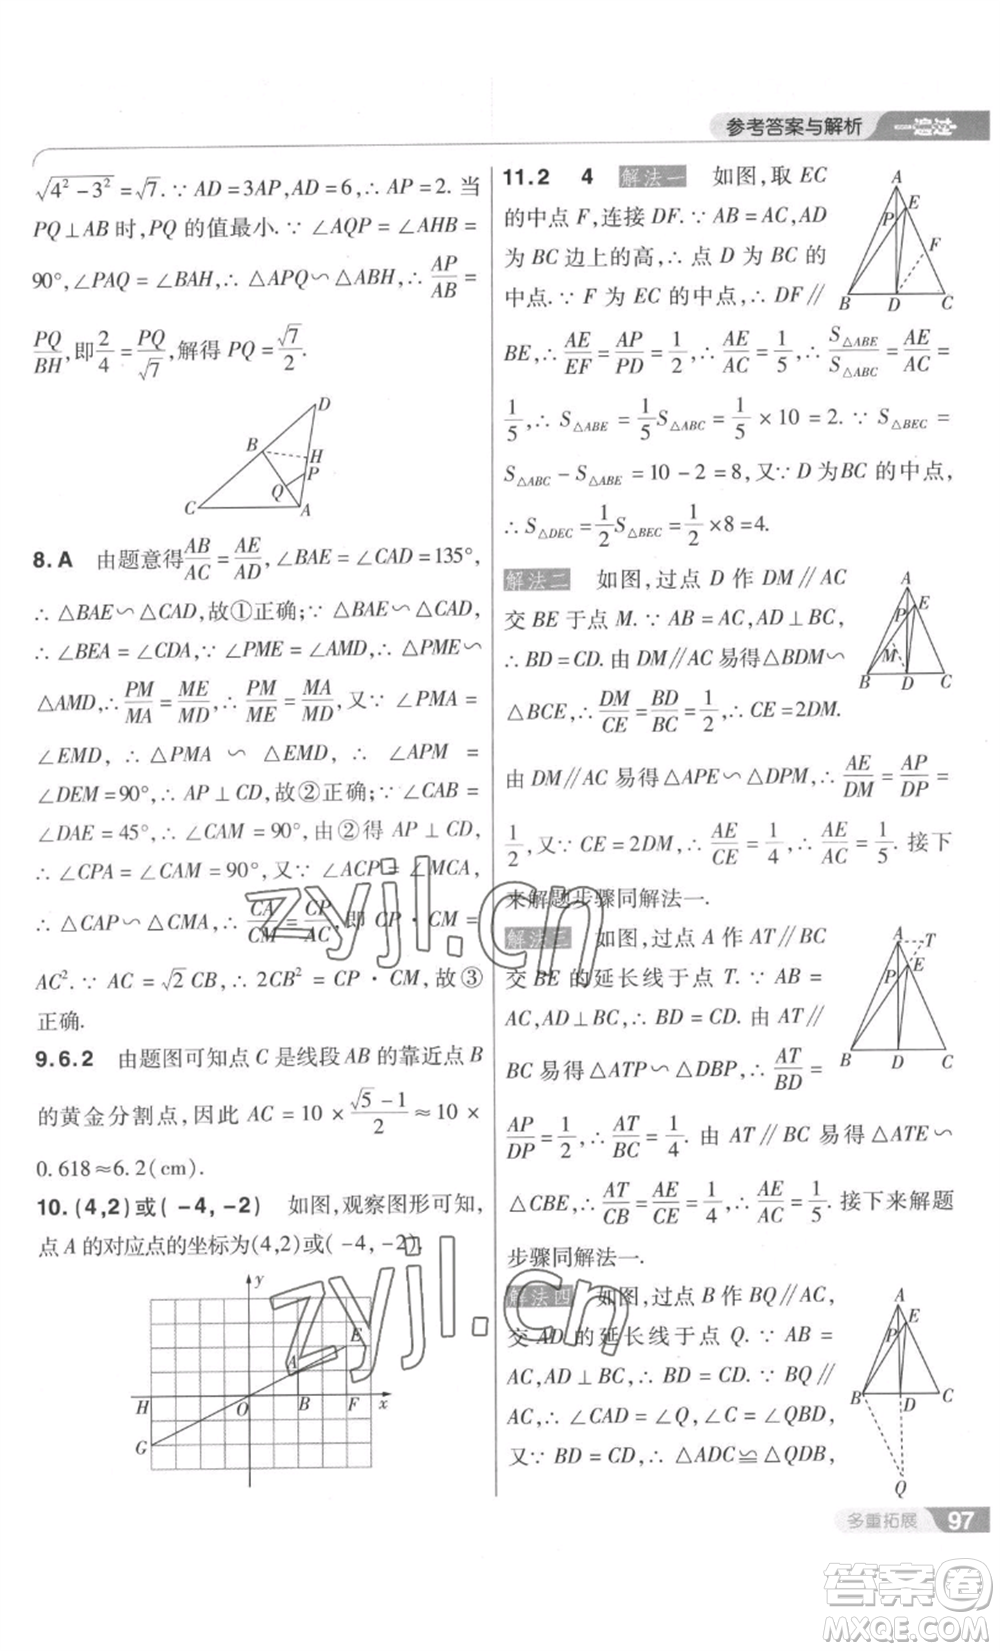 参考答案与解析 一遍过
√(4²－3²)＝√7.∵AD＝3AP,AD＝6,∴AP＝2.当
PQ⊥AB时,PQ的值最小.∵∠AQP＝∠AHB＝
90°,∠PAQ＝∠BAH,∴△APQ∽△ABH,∴AP/AB＝
PQ/BH,即2/4＝PQ/√7,解得PQ＝√7/2.
D
B
H
P
Q
C
A
8.A 由题意得AB/AC＝AE/AD,∠BAE＝∠CAD＝135°,
∴△BAE∽△CAD,故①正确;∵△BAE∽△CAD,
∴∠BEA＝∠CDA,∵∠PME＝∠AMD,∴△PME∽
△AMD,∴PM/MA＝ME/MD,∴PM/ME＝MA/MD,又∵∠PMA
＝∠EMD,∴△PMA∽△EMD,∴∠APM＝
∠DEM＝90°,∴AP⊥CD,故②正确.∵∠CAB＝
∠DAE＝45°,∴∠CAM＝90°,由②得AP⊥CD,
∴∠CPA＝∠CAM＝90°,又∵∠ACP＝∠MCA,
∴△CAP∽△CMA,∴CA/CM＝CP/AC,即CP·CM＝
AC².∵AC＝√2CB,∴2CB²＝CP·CM,故③
正确.
9.6.2 由题图可知点C是线段AB的靠近点B
的黄金分割点,因此AC＝10×(√5－1)/2≈10×
0.618≈6.2(cm).
10.(4,2)或(－4,－2) 如图,观察图形可知,
点A的对应点的坐标为(4,2)或(－4,－2).
y
E
A
H
O
B
F
x
G
11.2 4 解法一 如图,取EC
的中点F,连接DF.∵AB＝AC,AD
为BC边上的高,∴点D为BC的
中点.∵F为EC的中点,∴DF∥
A
P
E
F
B
D
C
BE,∴AE/EF＝AP/PD＝1/2,∴AE/AC＝1/5,∴S△ABE/S△ABC＝AE/AC＝
1/5,∴S△ABE＝1/5S△ABC＝1/5×10＝2.∵S△BEC＝
S△ABC－S△ABE＝10－2＝8,又∵D为BC的中点,
∴S△DEC＝1/2S△BEC＝1/2×8＝4.
解法二 如图,过点D作DM∥AC
交BE于点M.∵AB＝AC,AD⊥BC,
∴BD＝CD.由DM∥AC易得△BDM∽
△BCE,∴DM/CE＝BD/BC＝1/2,∴CE＝2DM.
A
P
E
M
B
D
C
由DM∥AC易得△APE∽△DPM,∴AE/DM＝AP/DP＝
1/2,又∵CE＝2DM,∴AE/CE＝1/4,∴AE/AC＝1/5.接下
来解题步骤同解法一.
解法三 如图,过点A作AT∥BC
交BE的延长线于点T.∵AB＝
AC,AD⊥BC,∴BD＝CD.由AT∥
BC易得△ATP∽△DBP,∴AT/BD＝
A
T
P
E
B
D
C
AP/DP＝1/2,∴AT/BC＝1/4.由AT∥BC易得△ATE∽
△CBE,∴AT/CB＝AE/CE＝1/4,∴AE/AC＝1/5.接下来解题
步骤同解法一.
解法四 如图,过点B作BQ∥AC,
交AD的延长线于点Q.∵AB＝
AC,AD⊥BC,∴BD＝CD.∵BQ∥
AC,∴∠DAC＝∠Q,∠C＝∠QBD,
又∵BD＝CD,∴△ADC≌△QDB,
A
P
E
B
D
C
Q
多重拓展 97
zyjl.cn
zyjl.cn
答案圈
MXQE.COM